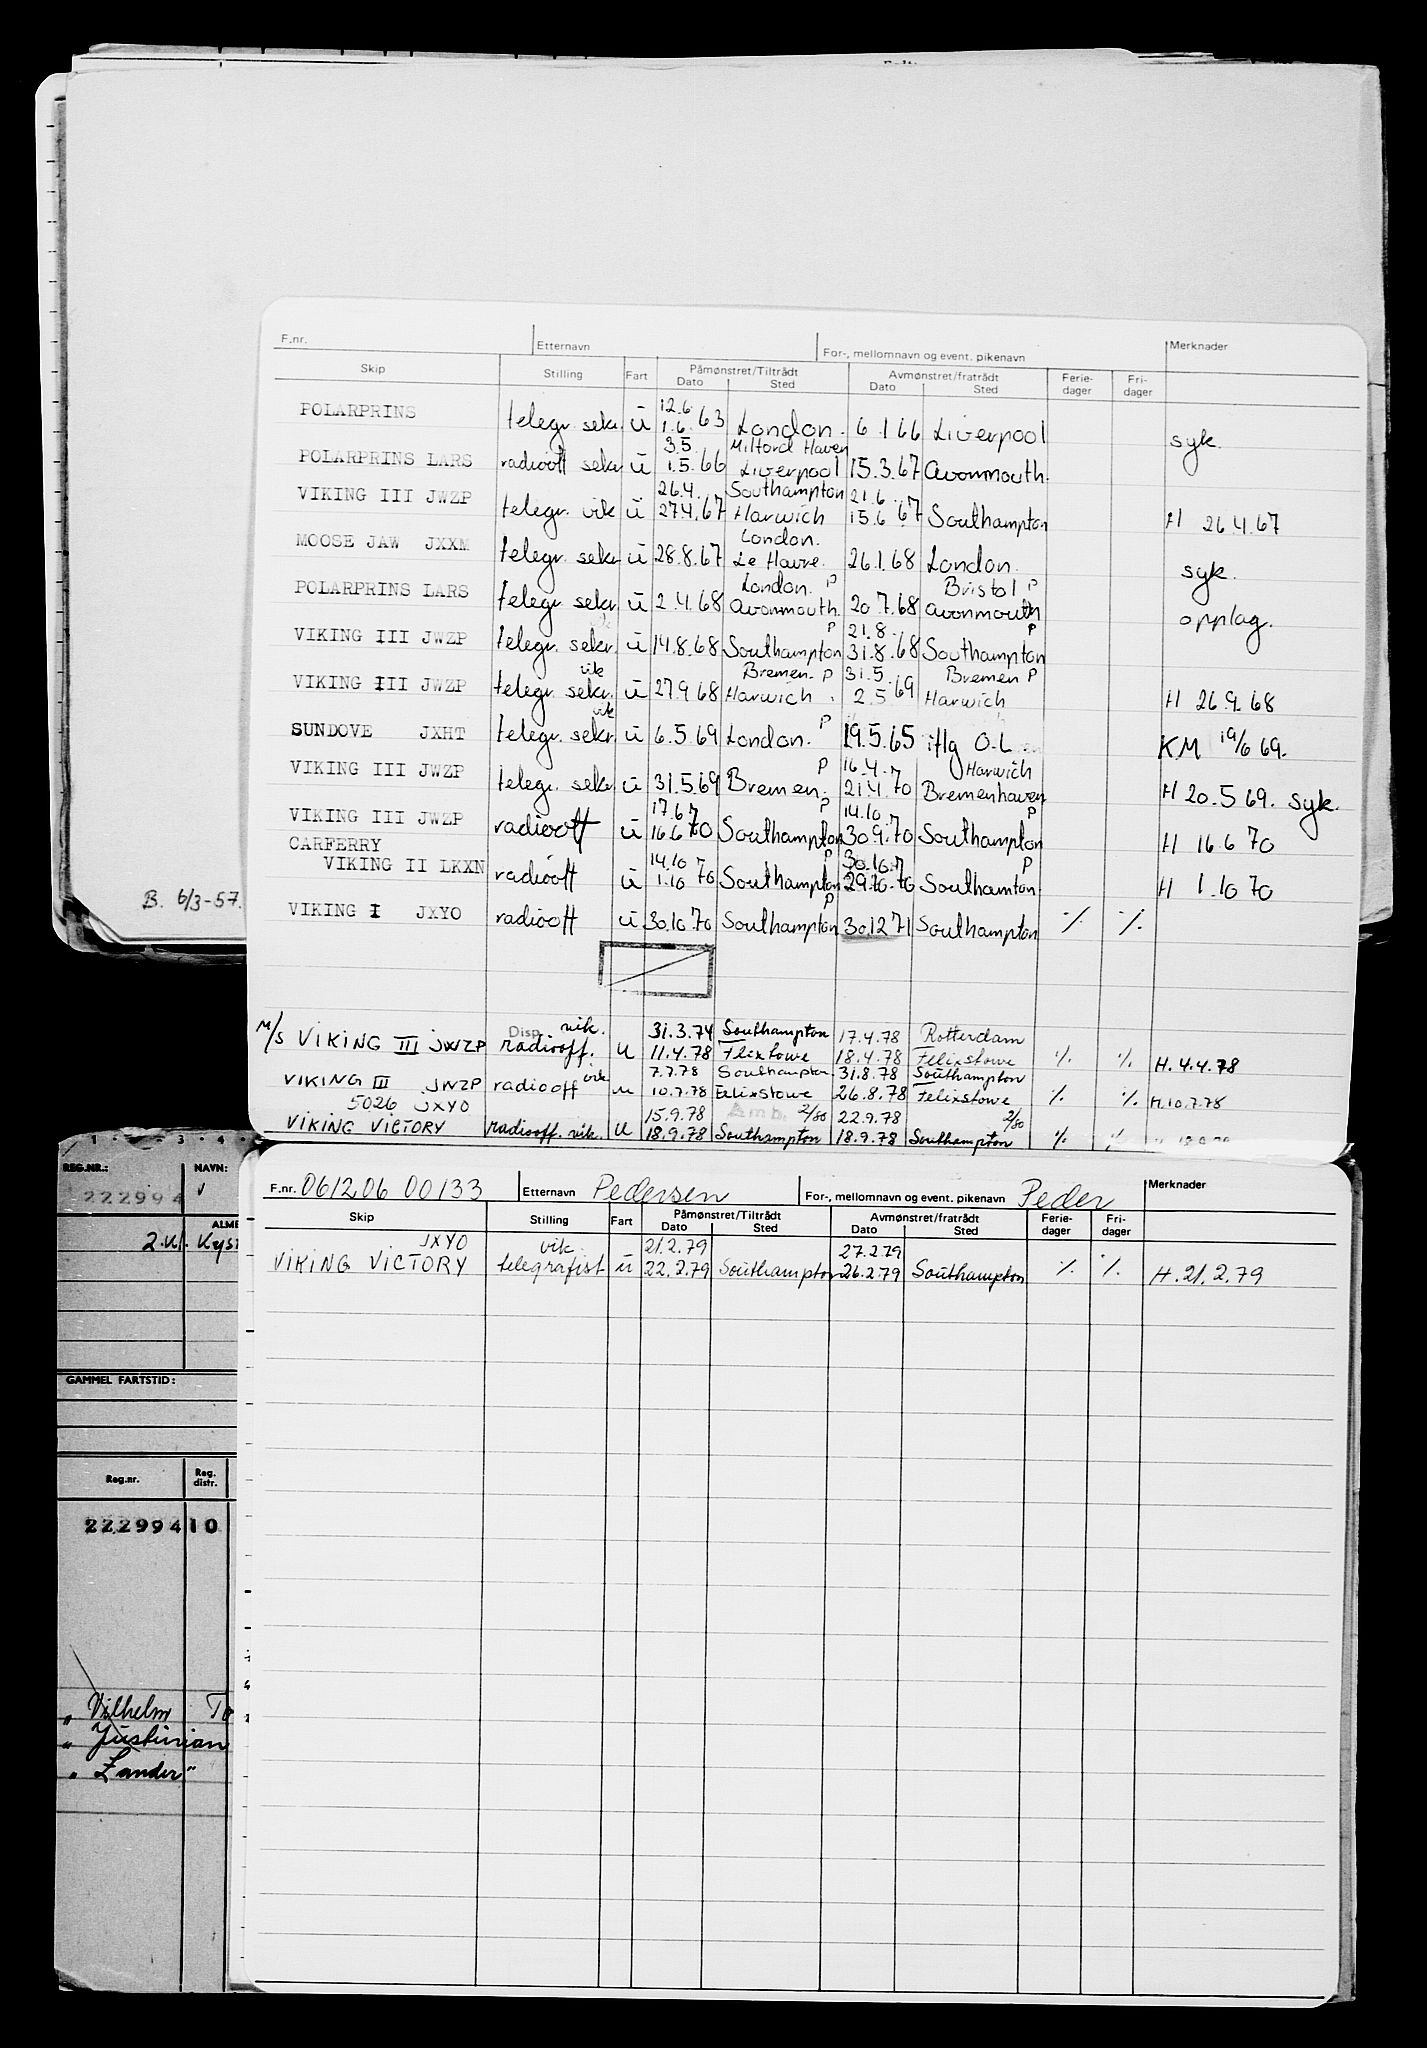 B. 6/3-57.
F.nr. Etternavn For-, mellomnavn og event. pikenavn Merknader
Skip Stilling Fart Påmønstret/Tiltrådt Avmønstret/fratrådt Ferie- Fri-
Dato Sted Dato Sted dager dager
12.6
POLARPRINS telegr. sekr ü 1.6.63 London. 6.1 66 Liverpool syk.
3.5 Milford Haven
POLARPRINS LARS radiooff sekr ü 1.5.66 Liverpool 15.3.67 Avonmouth.
26.4. Southampton 21.6.
VIKING III JWZP telegr. vik ü 27.4.67 Harwich 15.6 67 Southampton H 26.4.67
London.
MOOSE JAW JXXM telegr. sekr ü 28.8.67 Le Havre. 26.1.68 London. syk.
London. P Bristol P
POLARPRINS LARS telegr sekr. ü 2.4.68 Avonmouth. 20.7.68 Avonmouth opplag.
P 21.8. P
VIKING III JWZP telegr. sekr. ü 14.8.68 Southampton 31.8.68 Southampton
vik Bremen. P 31.5. Bremen P
VIKING III JWZP telegr. sekr. ü 27.9 68 Harwich. 2.5 69 Harwich H 26.9.68
vik P
SUNDOVE JXHT telegr. sekr ü 6.5 69 London. 19.5.65 iflg O.L KM 19/6 69.
P 16.4.7 Harwich
VIKING III JWZP telegr. sekr ü 31.5.69 Bremen. 21.4.70 Bremenhaven H 20.5 69. syk.
17.6 7 P 14.10.7 P
VIKING III JWZP radiooff ü 16.6 70 Southampton 30.9.70 Southampton H 16.6 70
CARFERRY 14.10 7 P 30.10.7 P
VIKING II LKXN radiooff ü 1.10 70 Southampton 29.10.70 Southamton H 1.10 70
P
VIKING I JXYO radiooff ü 30.10.70 Southampton 30.12 71 Southampton ./. ./.
Disp. vik. 31.3.74 Southampton 17.4.78 Rotterdam
M/S VIKING III JWZP radiooff. U 11.4.78 Felixtowe 18.4.78 Felixstowe ./. ./. H. 4.4.78
vik 7.7.78 Southampton 31.8.78 Southampton
VIKING III JWZP radiooff u 10.7.78 Felixstowe 26.8.78 Felixstowe ./. ./. H. 10.7.78
5026 JXYO 15.9.78 Amb. 2/80 22.9.78 2/80
VIKING VICTORY radiooff. vik. U 18.9.78 Southampton 18.9.78 Southampton ./. ./.
F.nr. 061206 00133 Etternavn Pedersen For-, mellomnavn og event. pikenavn Peder Merknader
Skip Stilling Fart Påmønstret/Tiltrådt Avmønstret/fratrådt Ferie- Fri-
Dato Sted Dato Sted dager dager
JXYO vik 21.2.79 27.2.79
VIKING VICTORY telegrafist ü 22.2.79 Southampton 26.2.79 Southampton ./. ./. H. 21.2.79
1 2 3 4
REG.NR.: NAVN:
222994
ALME
2.kl. Kyst
GAMMEL FARTSTID:
Reg.nr. Reg. distr.
222994 10
" Vilhelm To
" Justinian
" Zander"